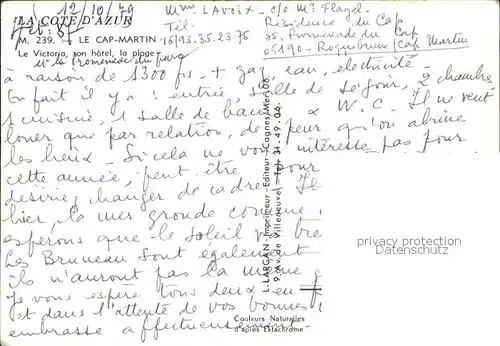 LA COTE D'AZUR
12/10/79
M. 239. LE CAP-MARTIN
Le Victoria, son hôtel, la plage
et la promenade du
Mme LAVOIX - c/o Mr Flagel
Tél. Résidence du Cap
16/93-35-23-76 35, Promenade du Cap
06190 - Roquebrune/Cap Martin
à raison de 1300 frs. + gaz, eau, électricité.
En fait il y a 1 entrée, salle de séjour, 2 chambres
1 cuisine, 1 salle de bains & W.C. Il ne veut
louer que par relation, de peur qu'on abîme
les lieux. Si cela ne vous intéresse pas pour
cette année, peut être
désiriez changer de cadre.
hier, la mer gronde comme
espérons que le soleil va
Les Bruneau sont également
ils n'auront pas la même
Je vous espère tous deux en
et dans l'attente de vos bonnes
embrasse affectueusement.
L. LARGAN - Imprimeur - Editeur - Cagnes/Mer 06
9, Av. de Villeneuve - Tél. 31-49-04
Couleurs Naturelles
d'après Ektachrome
privacy protection
Schutz des
Privateigentums